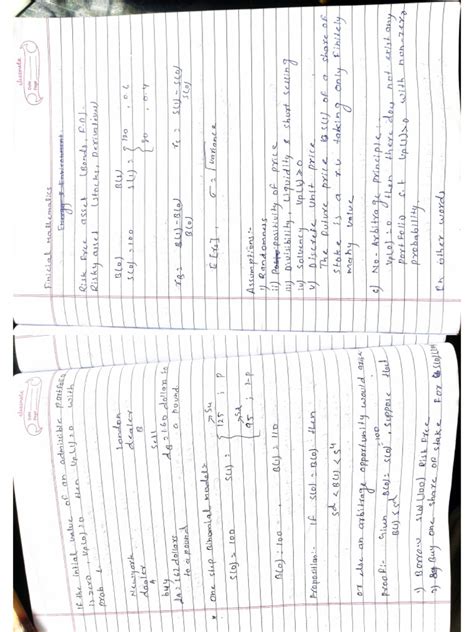 classmate
Date
Page
Finicial mathematics
Risk Free asset (Bonds, F.D).
Risky asset (stocks, Derivatives)
B(0) B(1)
S(0)=100 S(1)= { 130 , 0.6
90 , 0.4
r_B = B(1)-B(0) / B(0) r_s = S(1)-S(0) / S(0)
E[r_s], σ = √variance
Assumptions:-
i) Randomness
ii) positivity of price
iii) Divisibility, Liquidity & short selling
iv) Solvency V_p(1)≥0
v) Discrete Unit price
The future price S(1) of a share of
stake is a r.v taking only finitely
many value
c) No-Arbitrage principle.
V_p(0)=0, then there does not exist any
portfolio s.t V_p(1)>0 with non-zero
probability.
In other words
classmate
Date
Page
If the intial value of an admissible portfolio
is zero, V_p(0)=0 then V_p(1)=0 with
prob 1.
Newyork London
dealer dealer
A B
buy sell
d_A=1.62 dollars d_B=1.60 dollar to
to a pound a pound.
* One step Binomial model>
S(0)=100 S(1)= { 125 ; p
95 ; 1-p
B(0)=100, B(1)=110
Proposition:- If S(0)=B(0) then
S^d < B(1) < S^u
or else an arbitrage opportunity would arise
Proof:- Given B(0)=S(0)=100, suppose that
B(1)≤S^d
1) Borrow S(0)(100) Risk Free
2) Buy one share of stake For S(0)